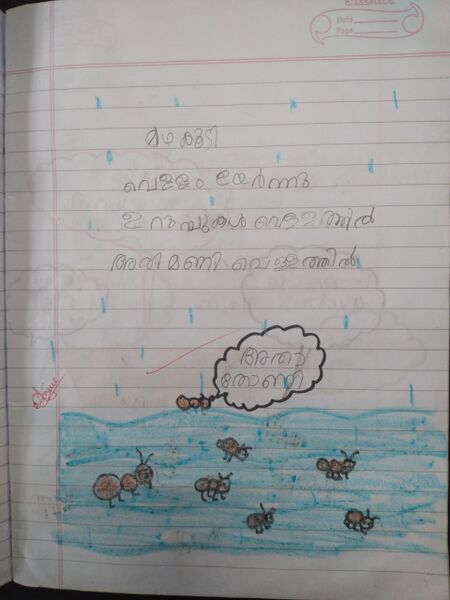 CLASSMATE
Date
Page
മഴ കൂടി
വെള്ളം ഉയർന്നു
ഉറുമ്പുകൾ വെള്ളത്തിൽ
അരിമണി വെള്ളത്തിൽ
അതാ
തോണി